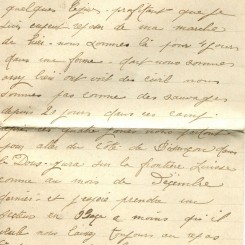 quelques lignes profitant que je
suis encore repos de ma marche
de hier. nous sommes là pour 4 jours
dans une ferme. dont nous sommes
assez bien on voit des civil nous
sommes pas comme des sauvages
depuis 20 jours dans ces camp.
après ces quatre jours nous
pour aller du côté de Besançon dans
le Doubs. jura sur la frontière Suisse
comme au mois de Décembre
dernier et j'espère prendre un
en Alsace a moins qu'il
nous laisse toujours au repos